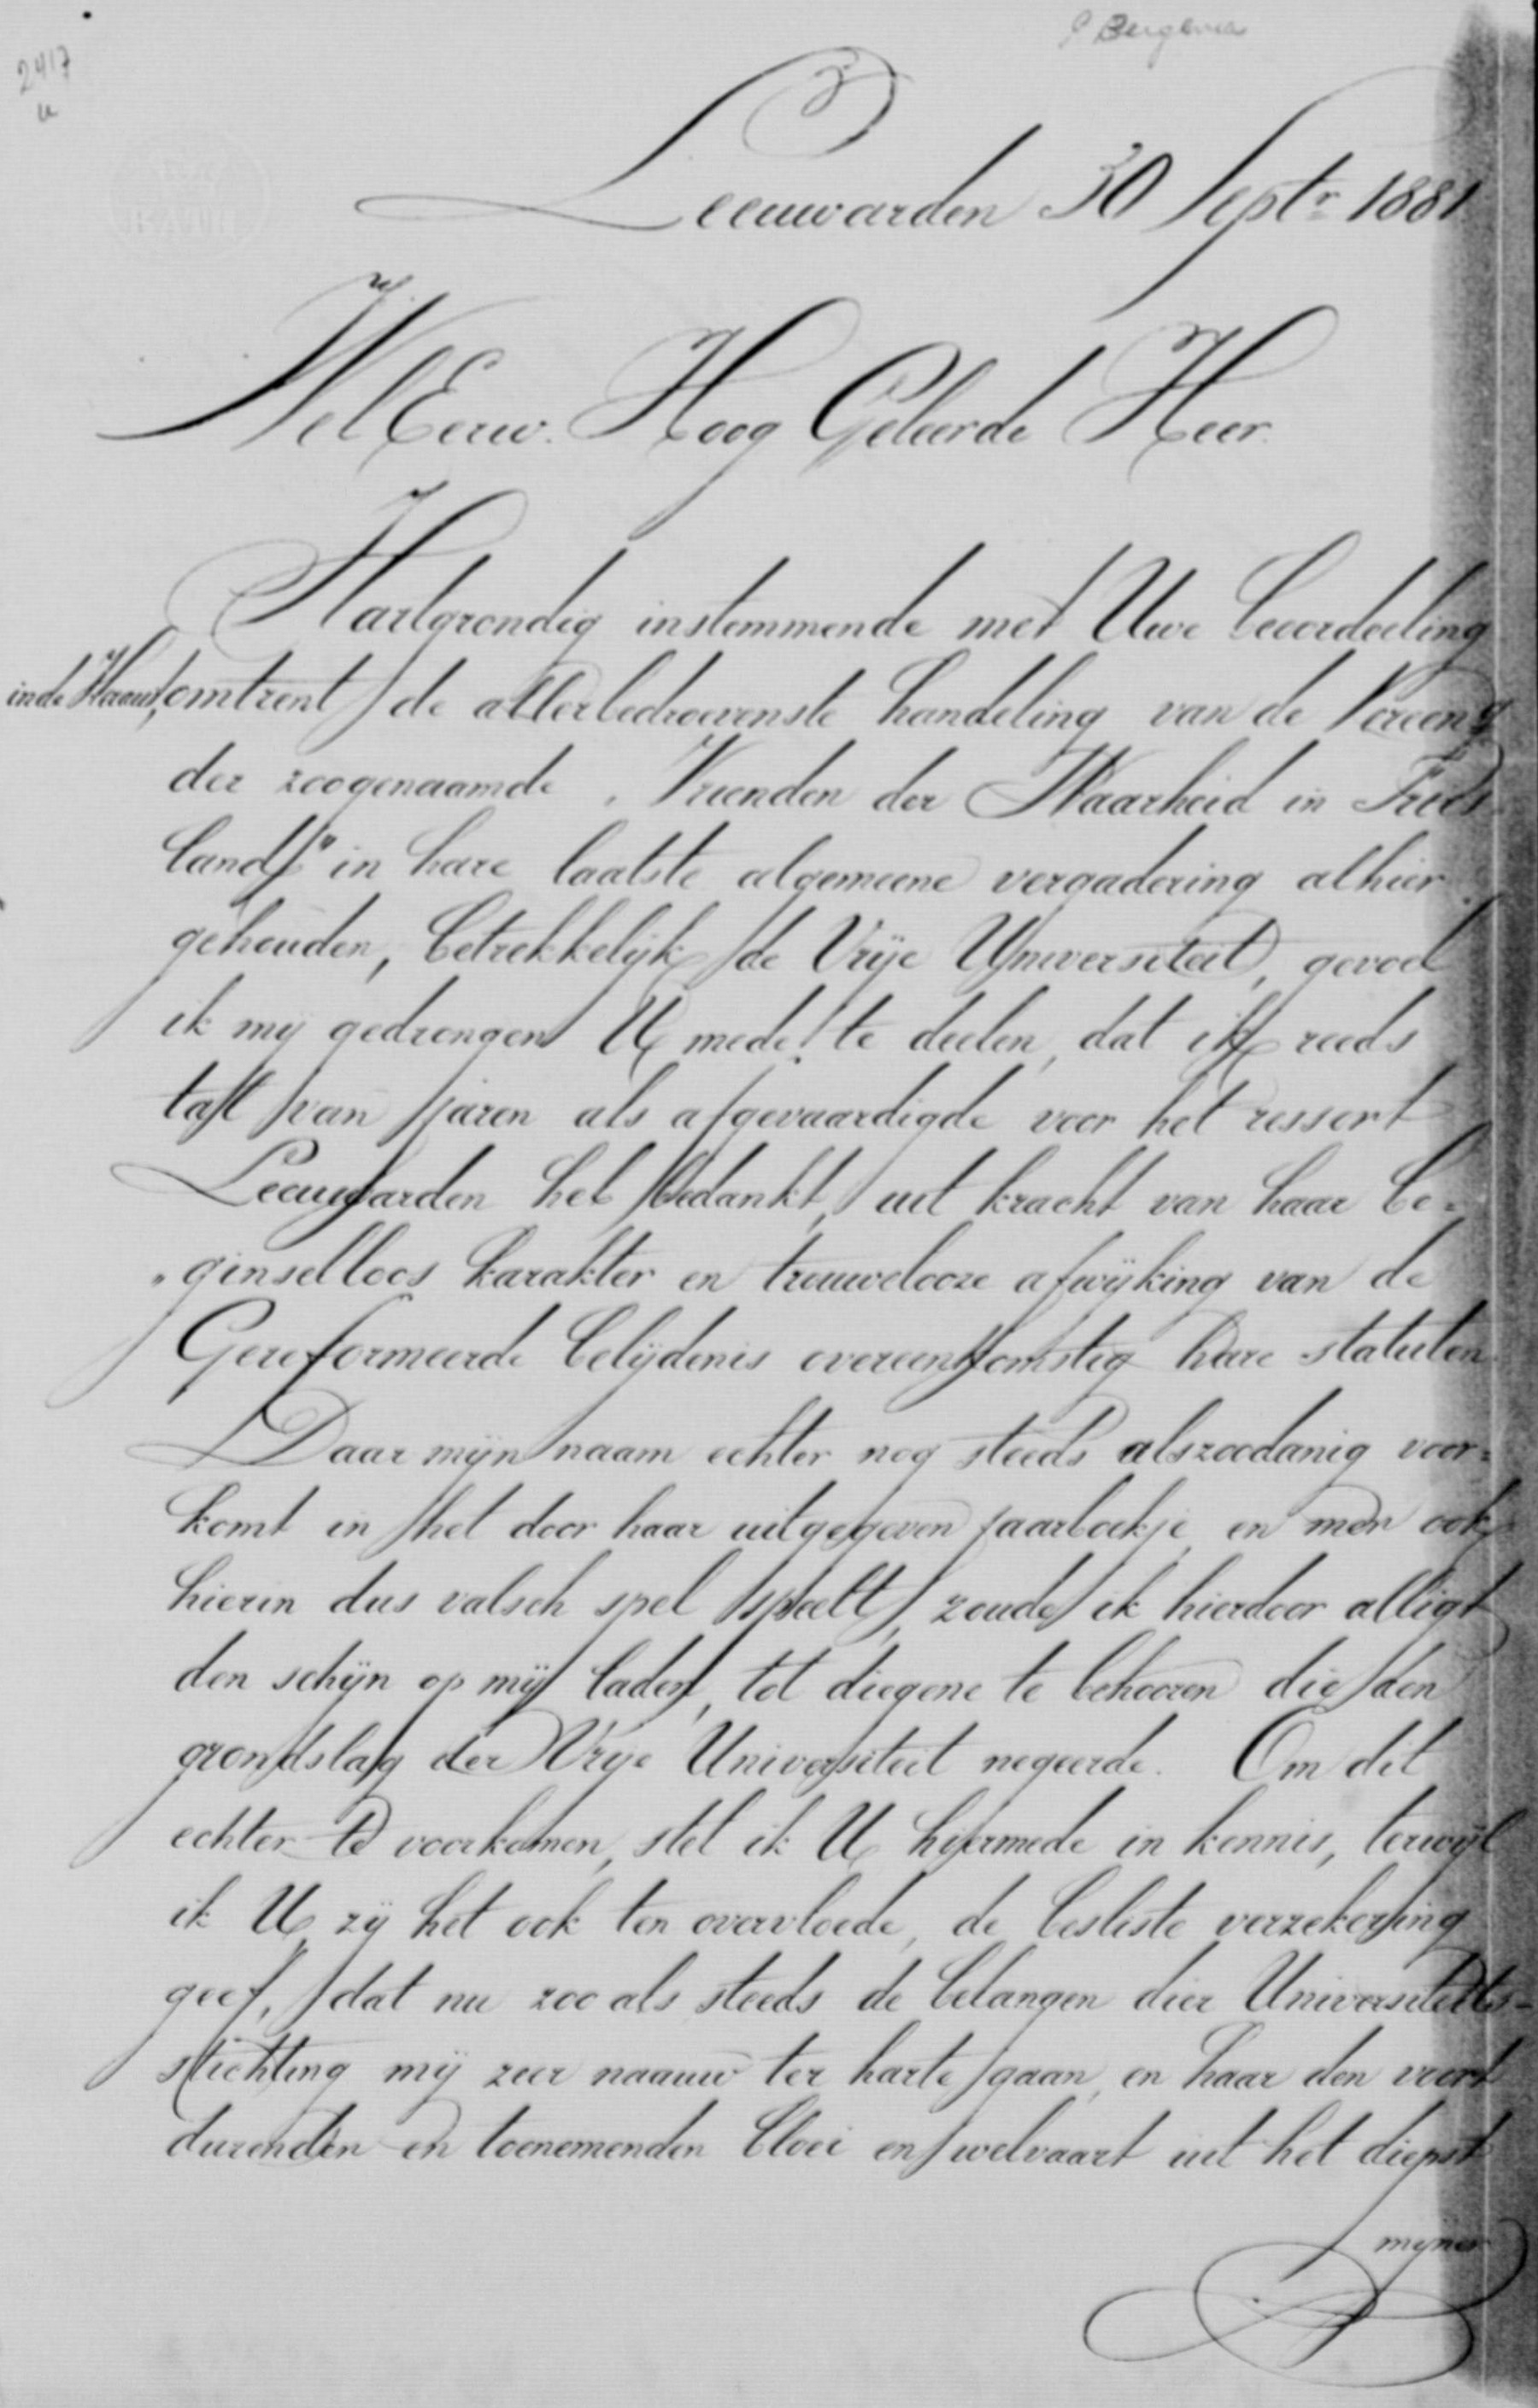 2417
Leeuwarden 30 Septr 1881
WelEerw. Hoog Geleerde Heer.
Hartgrondig instemmende met Uwe beoordeeling
in de Heraut, omtrent de allerbedroevenste handeling van de Vereeng
der zoogenaamde „Vrienden der Waarheid in Fries-
land" in hare laatste algemeene vergadering alhier
gehouden, betrekkelijk de Vrije Universiteit, gevoel
ik mij gedrongen U mede te deelen, dat ik reeds
tal van jaren als afgevaardigde voor het ressort
Leeuwarden heb bedankt, uit kracht van haar be=
„ginselloos karakter en trouwelooze afwijking van de
Gereformeerde belijdenis overeenkomstig hare statuten.
Daar mijn naam echter nog steeds alszoodanig voor=
komt in het door haar uitgegeven jaarboekje, en men ook
hierin dus valsch spel speelt, zoude ik hierdoor alligt
den schijn op mij laden, tot diegene te behooren die den
grondslag der Vrije Universiteit negeerde. Om dit
echter te voorkomen, stel ik U hiermede in kennis, terwijl
ik U, zij het ook ten overvloede, de besliste verzekering
geef, dat nu zoo als steeds de belangen dier Universiteits-
stichting mij zeer naauw ter harte gaan, en haar den voort
durenden en toenemenden bloei en welvaart uit het diepst
mijner